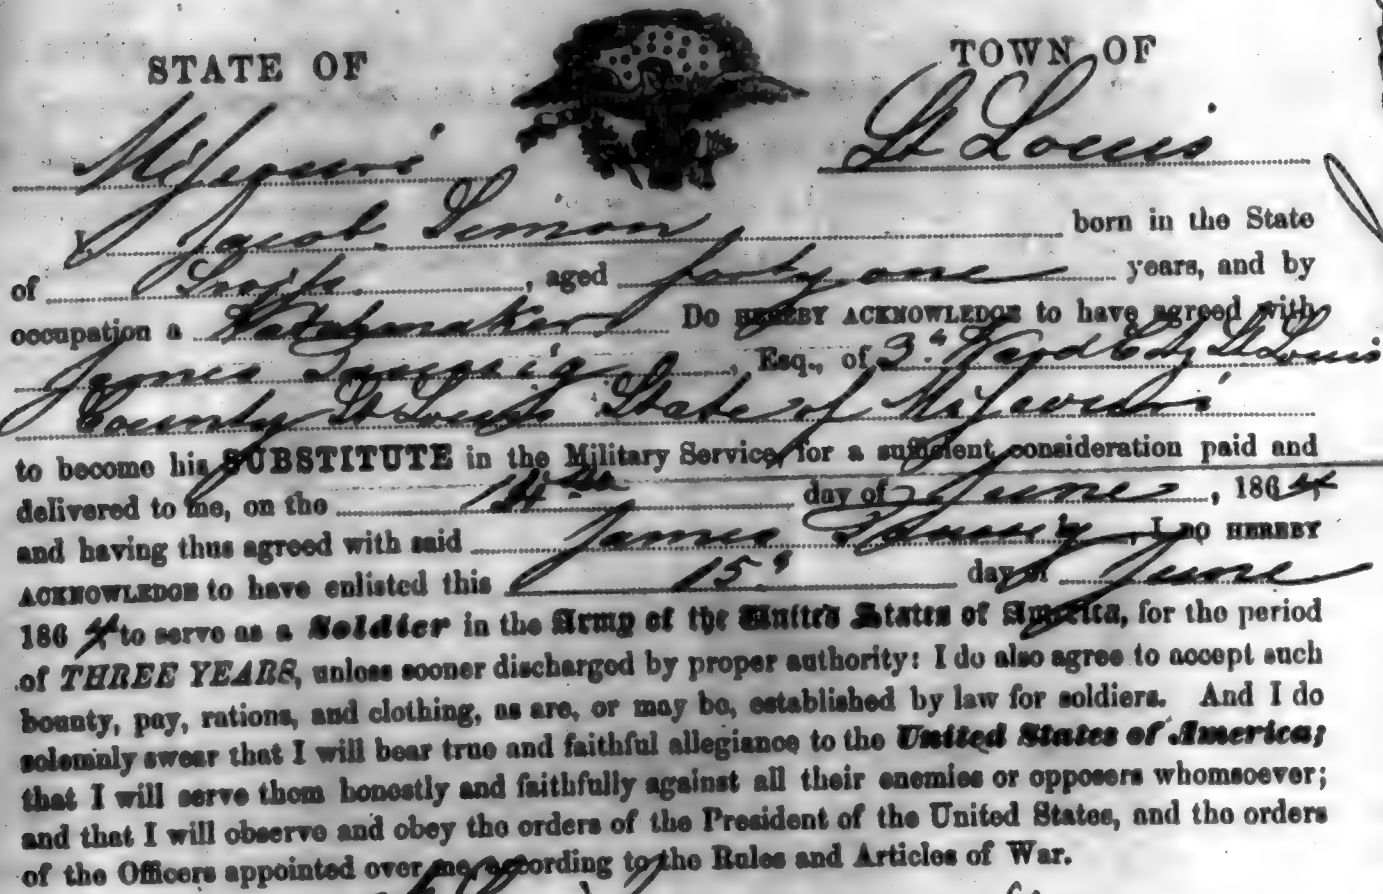 STATE OF TOWN OF
Missouri St Louis
I, Jacob Simon born in the State
of , aged forty one years, and by
occupation a Watchmaker Do HEREBY ACKNOWLEDGE to have agreed with
James , Esq., of 3d Ward City St Louis
County St Louis State of Missouri
to become his SUBSTITUTE in the Military Service, for a sufficient consideration paid and
delivered to me, on the 14th day of June , 1864,
and having thus agreed with said James , I DO HEREBY
ACKNOWLEDGE to have enlisted this 15" day of June
1864, to serve as a Soldier in the Army of the United States of America, for the period
of THREE YEARS, unless sooner discharged by proper authority: I do also agree to accept such
bounty, pay, rations, and clothing, as are, or may be, established by law for soldiers. And I do
solemnly swear that I will bear true and faithful allegiance to the United States of America;
that I will serve them honestly and faithfully against all their enemies or opposers whomsoever;
and that I will observe and obey the orders of the President of the United States, and the orders
of the Officers appointed over me, according to the Rules and Articles of War.